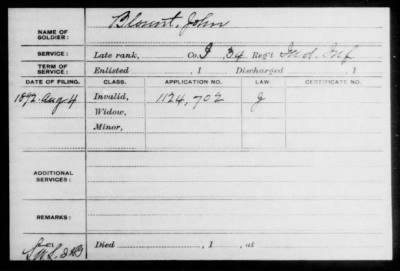 Blount, John
NAME OF SOLDIER:
SERVICE: Late rank, Co. I, 34 Reg't Ind. Inf.
TERM OF SERVICE: Enlisted , 1 Discharged , 1
DATE OF FILING. CLASS. APPLICATION NO. LAW. CERTIFICATE NO.
1892. Aug 4 Invalid, 1124,702
Widow,
Minor,
ADDITIONAL SERVICES:
REMARKS:
Died , 1 , at